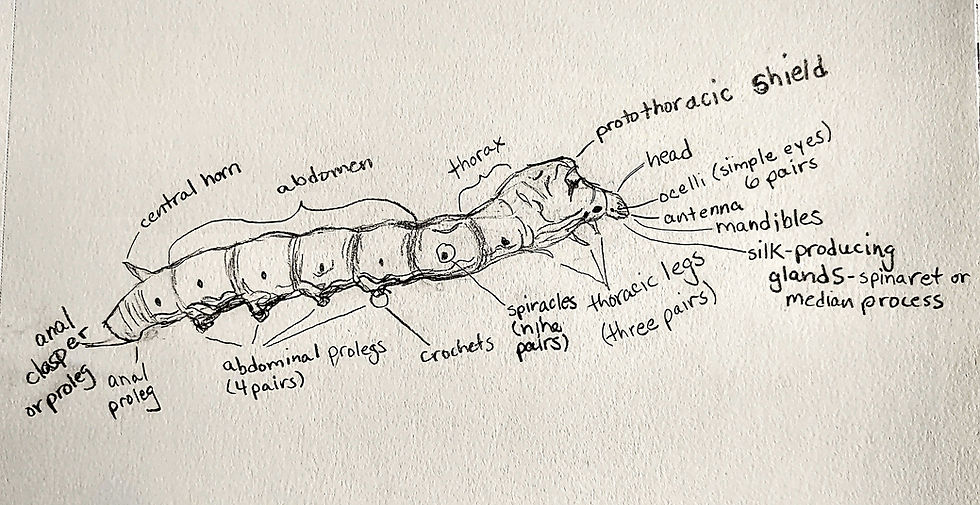 protothoracic shield
thorax
abdomen
central horn
head
ocelli (simple eyes)
6 pairs
antenna
mandibles
silk-producing
glands-spinaret or
median process
thoracic legs
(three pairs)
spiracles
(nine
pairs)
crochets
abdominal prolegs
(4 pairs)
anal
proleg
anal
clasper
or proleg